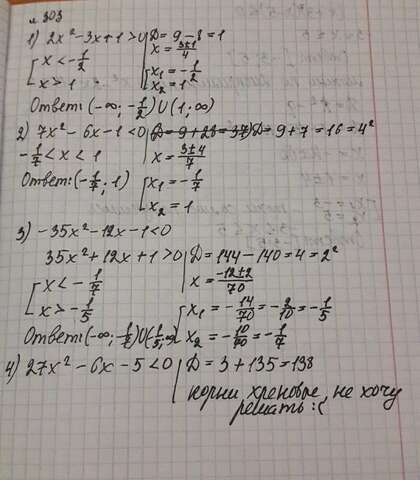 № 303
1) 2x² - 3x + 1 > 0 | D = 9 - 8 = 1
x = 3±1/4
[ x < -1/2
x > 1
[ x₁ = -1/2
x₂ = 1
Ответ: (-∞; -1/2) ∪ (1; ∞)
2) 7x² - 6x - 1 < 0 | D = 9 + 28 = 37) D = 9 + 7 = 16 = 4²
-1/7 < x < 1
x = 3±4/7
Ответ: (-1/7; 1)
[ x₁ = -1/7
x₂ = 1
3) -35x² - 12x - 1 < 0
35x² + 12x + 1 > 0 | D = 144 - 140 = 4 = 2²
[ x < -1/7
x > -1/5
x = -12±2/70
[ x₁ = -14/70 = -2/10 = -1/5
x₂ = -10/70 = -1/7
Ответ: (-∞; -1/7) ∪ (-1/5; ∞)
4) 27x² - 6x - 5 < 0 | D = 3 + 135 = 138
корни хреновые, не хочу
решать :(